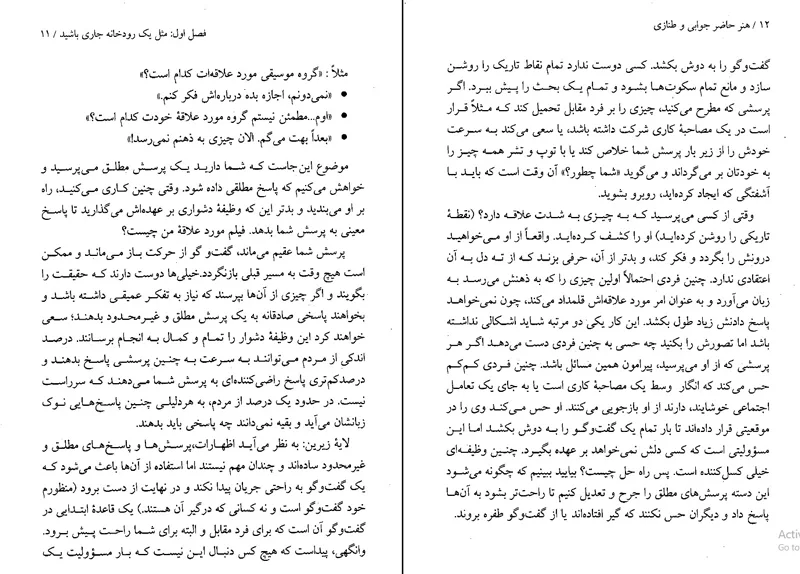 فصل اول: مثل یک رودخانه جاری باشید / ۱۱
مثلاً: «گروه موسیقی مورد علاقه‌ات کدام است؟»
● «نمی‌دونم، اجازه بده درباره‌اش فکر کنم.»
● «اوم...مطمئن نیستم گروه مورد علاقهٔ خودت کدام است؟»
● «بعداً بهت می‌گم. الان چیزی به ذهنم نمی‌رسد!»
موضوع این‌جاست که شما دارید یک پرسش مطلق می‌پرسید و
خواهش می‌کنیم که پاسخ مطلقی داده شود. وقتی چنین کاری می‌کنید، راه
بر او می‌بندید و بدتر این که وظیفهٔ دشواری بر عهده‌اش می‌گذارید تا پاسخ
معینی به پرسش شما بدهد. فیلم مورد علاقهٔ من چیست؟
پرسش شما عقیم می‌ماند، گفت‌و گو از حرکت باز می‌ماند و ممکن
است هیچ وقت به مسیر قبلی بازنگردد.خیلی‌ها دوست دارند که حقیقت را
بگویند و اگر چیزی از آن‌ها بپرسند که نیاز به تفکر عمیقی داشته باشد و
بخواهند پاسخی صادقانه به یک پرسش مطلق و غیرمحدود بدهند؛ سعی
خواهند کرد این وظیفهٔ دشوار را تمام و کمال به انجام برسانند. درصد
اندکی از مردم می‌توانند به سرعت به چنین پرسشی پاسخ بدهند و
درصدکم‌تری پاسخ راضی‌کننده‌ای به پرسش شما می‌دهند که سرراست
نیست. در حدود یک درصد از مردم، به هردلیلی چنین پاسخ‌هایی نوک
زبانشان می‌آید و بقیه نمی‌دانند چه پاسخی باید بدهند.
لایهٔ زیرین: به نظر می‌آید اظهارات،پرسش‌ها و پاسخ‌های مطلق و
غیرمحدود ساده‌اند و چندان مهم نیستند اما استفاده از آن‌ها باعث می‌شود که
یک گفت‌وگو به راحتی جریان پیدا نکند و در نهایت از دست برود (منظورم
خود گفت‌وگو است و نه کسانی که درگیر آن هستند.) یک قاعدهٔ ابتدایی در
گفت‌وگو آن است که برای فرد مقابل و البته برای شما راحت پیش برود.
وانگهی، پیداست که هیچ کس دنبال این نیست که بار مسؤولیت یک
۱۲ / هنر حاضر جوابی و طنازی
گفت‌وگو را به دوش بکشد. کسی دوست ندارد تمام نقاط تاریک را روشن
سازد و مانع تمام سکوت‌ها بشود و تمام یک بحث را پیش ببرد. اگر
پرسشی که مطرح می‌کنید، چیزی را بر فرد مقابل تحمیل کند که مـثلاً قرار
است در یک مصاحبهٔ کاری شرکت داشته باشد، یا سعی می‌کند به سرعت
خودش را از زیر بار پرسش شما خلاص کند یا با توپ و تشر همه چیز را
به خودتان بر می‌گرداند و می‌گوید «شما چطور؟» آن وقت است که باید با
آشفتگی که ایجاد کرده‌اید، روبرو بشوید.
وقتی از کسی می‌پرسید که به چیزی به شدت علاقه دارد؟ (نقطهٔ
تاریکی را روشن کرده‌اید) او را کشف کرده‌اید. واقعاً از او می‌خواهید
درونش را بگردد و فکر کند، و بدتر از آن، حرفی بزند که از ته دل به آن
اعتقادی ندارد. چنین فردی احتمالاً اولین چیزی را که به ذهنش می‌رسد به
زبان می‌آورد و به عنوان امر مورد علاقه‌اش قلمداد می‌کند، چون نمی‌خواهد
پاسخ دادنش زیاد طول بکشد. این کار یکی دو مرتبه شاید اشکالی نداشته
باشد اما تصورش را بکنید چه حسی به چنین فردی دست می‌دهد اگر هر
پرسشی که از او می‌پرسید، پیرامون همین مسائل باشد. چنین فردی کم‌کم
حس می‌کند که انگار وسط یک مصاحبهٔ کاری است یا به جای یک تعامل
اجتماعی خوشایند، دارند از او بازجویی می‌کنند. او حس می‌کند وی را در
موقعیتی قرار داده‌اند تا بار تمام یک گفت‌وگو را به دوش بکشد اما این
مسؤولیتی است که کسی دلش نمی‌خواهد بر عهده بگیرد. چنین وظیفه‌ای
خیلی کسل‌کننده است. پس راه حل چیست؟ بیایید ببینیم که چگونه می‌شود
این دسته پرسش‌های مطلق را جرح و تعدیل کنیم تا راحت‌تر بشود به آن‌ها
پاسخ داد و دیگران حس نکنند که گیر افتاده‌اند یا از گفت‌وگو طفره بروند.
Activ
Go to